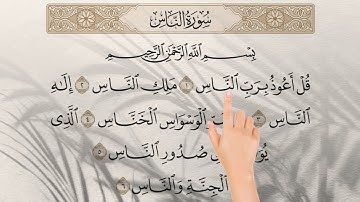 سُورَةُ النَّاسِ
بِسْمِ اللَّهِ الرَّحْمَٰنِ الرَّحِيمِ
قُلْ أَعُوذُ بِرَبِّ النَّاسِ ١ مَلِكِ النَّاسِ ٢ إِلَٰهِ
النَّاسِ ٣ الْوَسْوَاسِ الْخَنَّاسِ ٤ الَّذِي
صُدُورِ النَّاسِ ٥
الْجِنَّةِ وَالنَّاسِ ٦